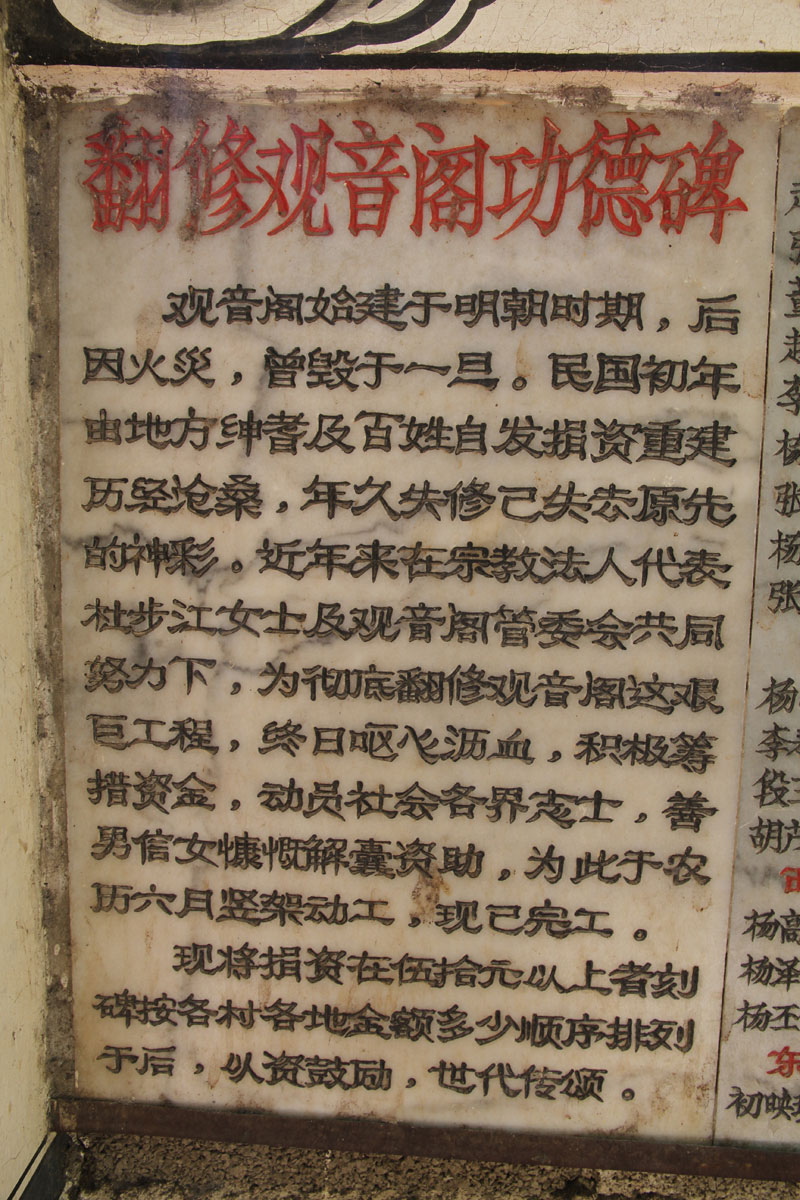 翻修观音阁功德碑
观音阁始建于明朝时期，后
因火災，曾毁于一旦。民国初年
由地方绅耆及百姓自发捐资重建
历经沧桑，年久失修已失去原先
的神彩。近年来在宗教法人代表
杜步江女士及观音阁管委会共同
努力下，为彻底翻修观音阁这艰
巨工程，终日呕心沥血，积极筹
措资金，动员社会各界志士，善
男信女慷慨解囊资助，为此于农
历六月竖架动工，现已完工。
现将捐资在伍拾元以上者刻
碑按各村各地金额多少顺序排列
于后，以资鼓励，世代传颂。
张
董
李
张
杨
张
杨
李
段
胡
杨高
杨泽
杨
东
初映